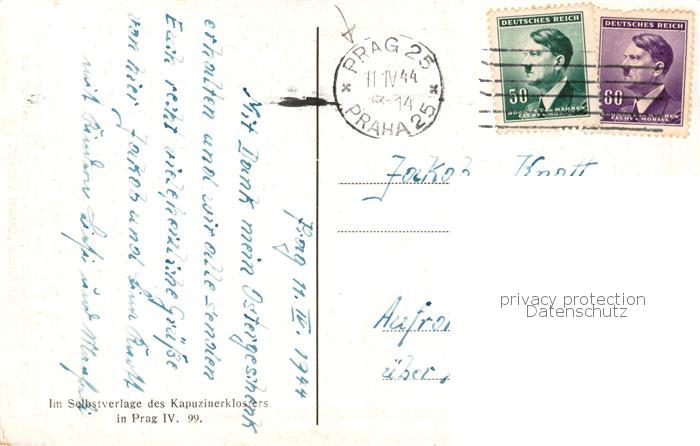 Prag 11. IV. 1944
Mit Dank mein Ostergeschenk
erhalten und wir alle senden
Euch recht viele herzliche Grüße
von hier Jakob und Knott
mit Kindern und
Im Selbstverlage des Kapuzinerklosters
in Prag IV. 99.
PRAG 25
11 IV 44
14
PRAHA 25
DEUTSCHES REICH
50
BÖHMEN UND MÄHREN
ČECHY A MORAVA
DEUTSCHES REICH
60
BÖHMEN UND MÄHREN
ČECHY A MORAVA
Jakob Knott
privacy protection
Datenschutz
über